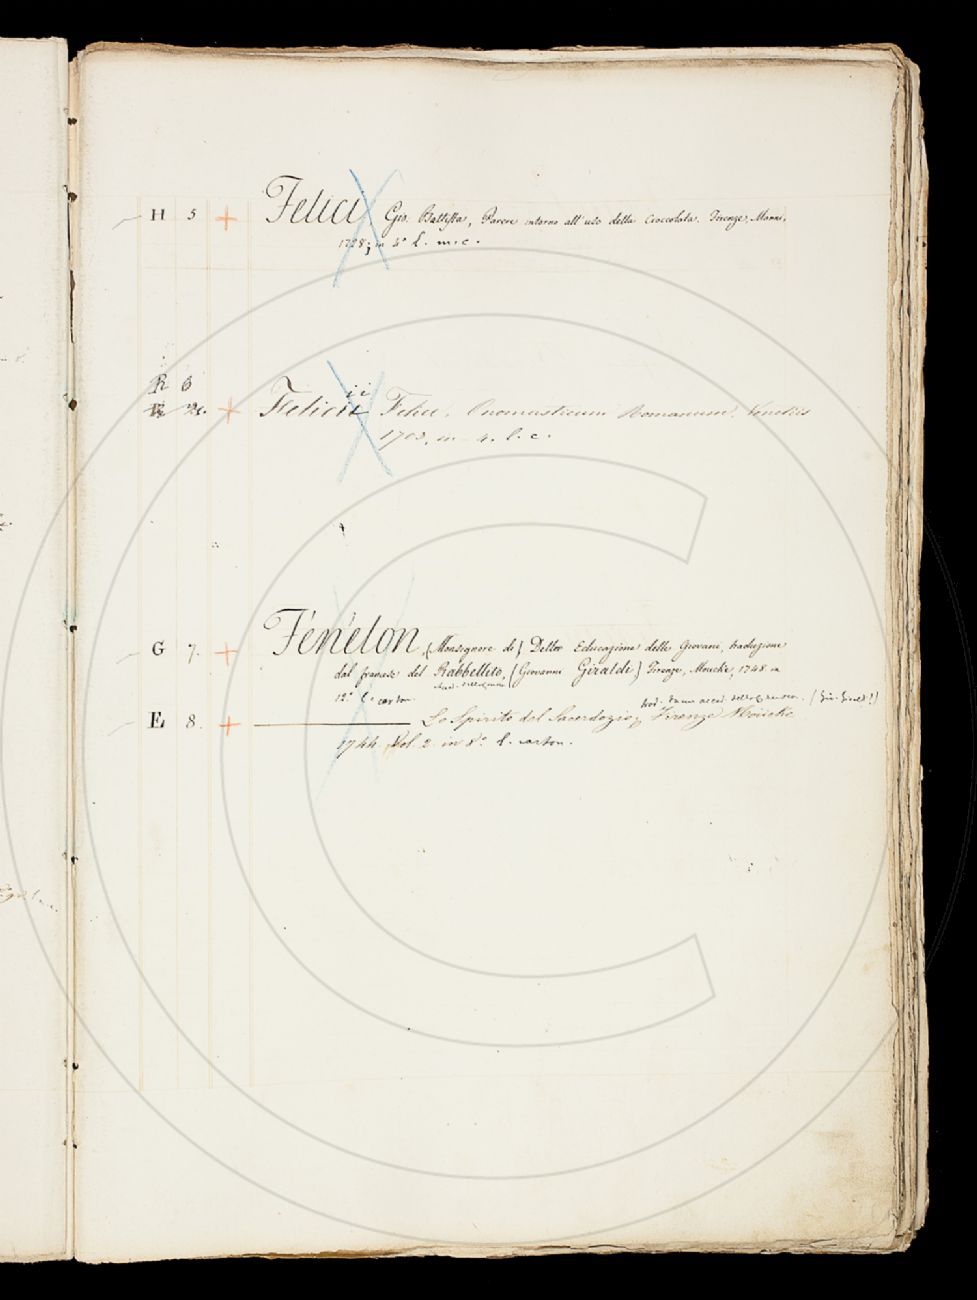 H 5 + Felici Gio. Battista, Parere intorno all' uso della Cioccolata. Firenze, Manni.
1728; in 4° l. m. c.
R 6
+ Felicii Felice. Onomasticum Romanum. Venetiis
1703. in 4. l. c.
G 7. + Fénélon, (Monsignore di) Della Educazione delle Giovani, traduzione
dal francese del Rabbellito, (Giovanni Giraldi) Firenze, Moucke, 1748. in
12° l. carton.
E 8. + Lo Spirito del Sacerdozio, Firenze Moücke
1744. Vol. 2. in 8° l. carton.